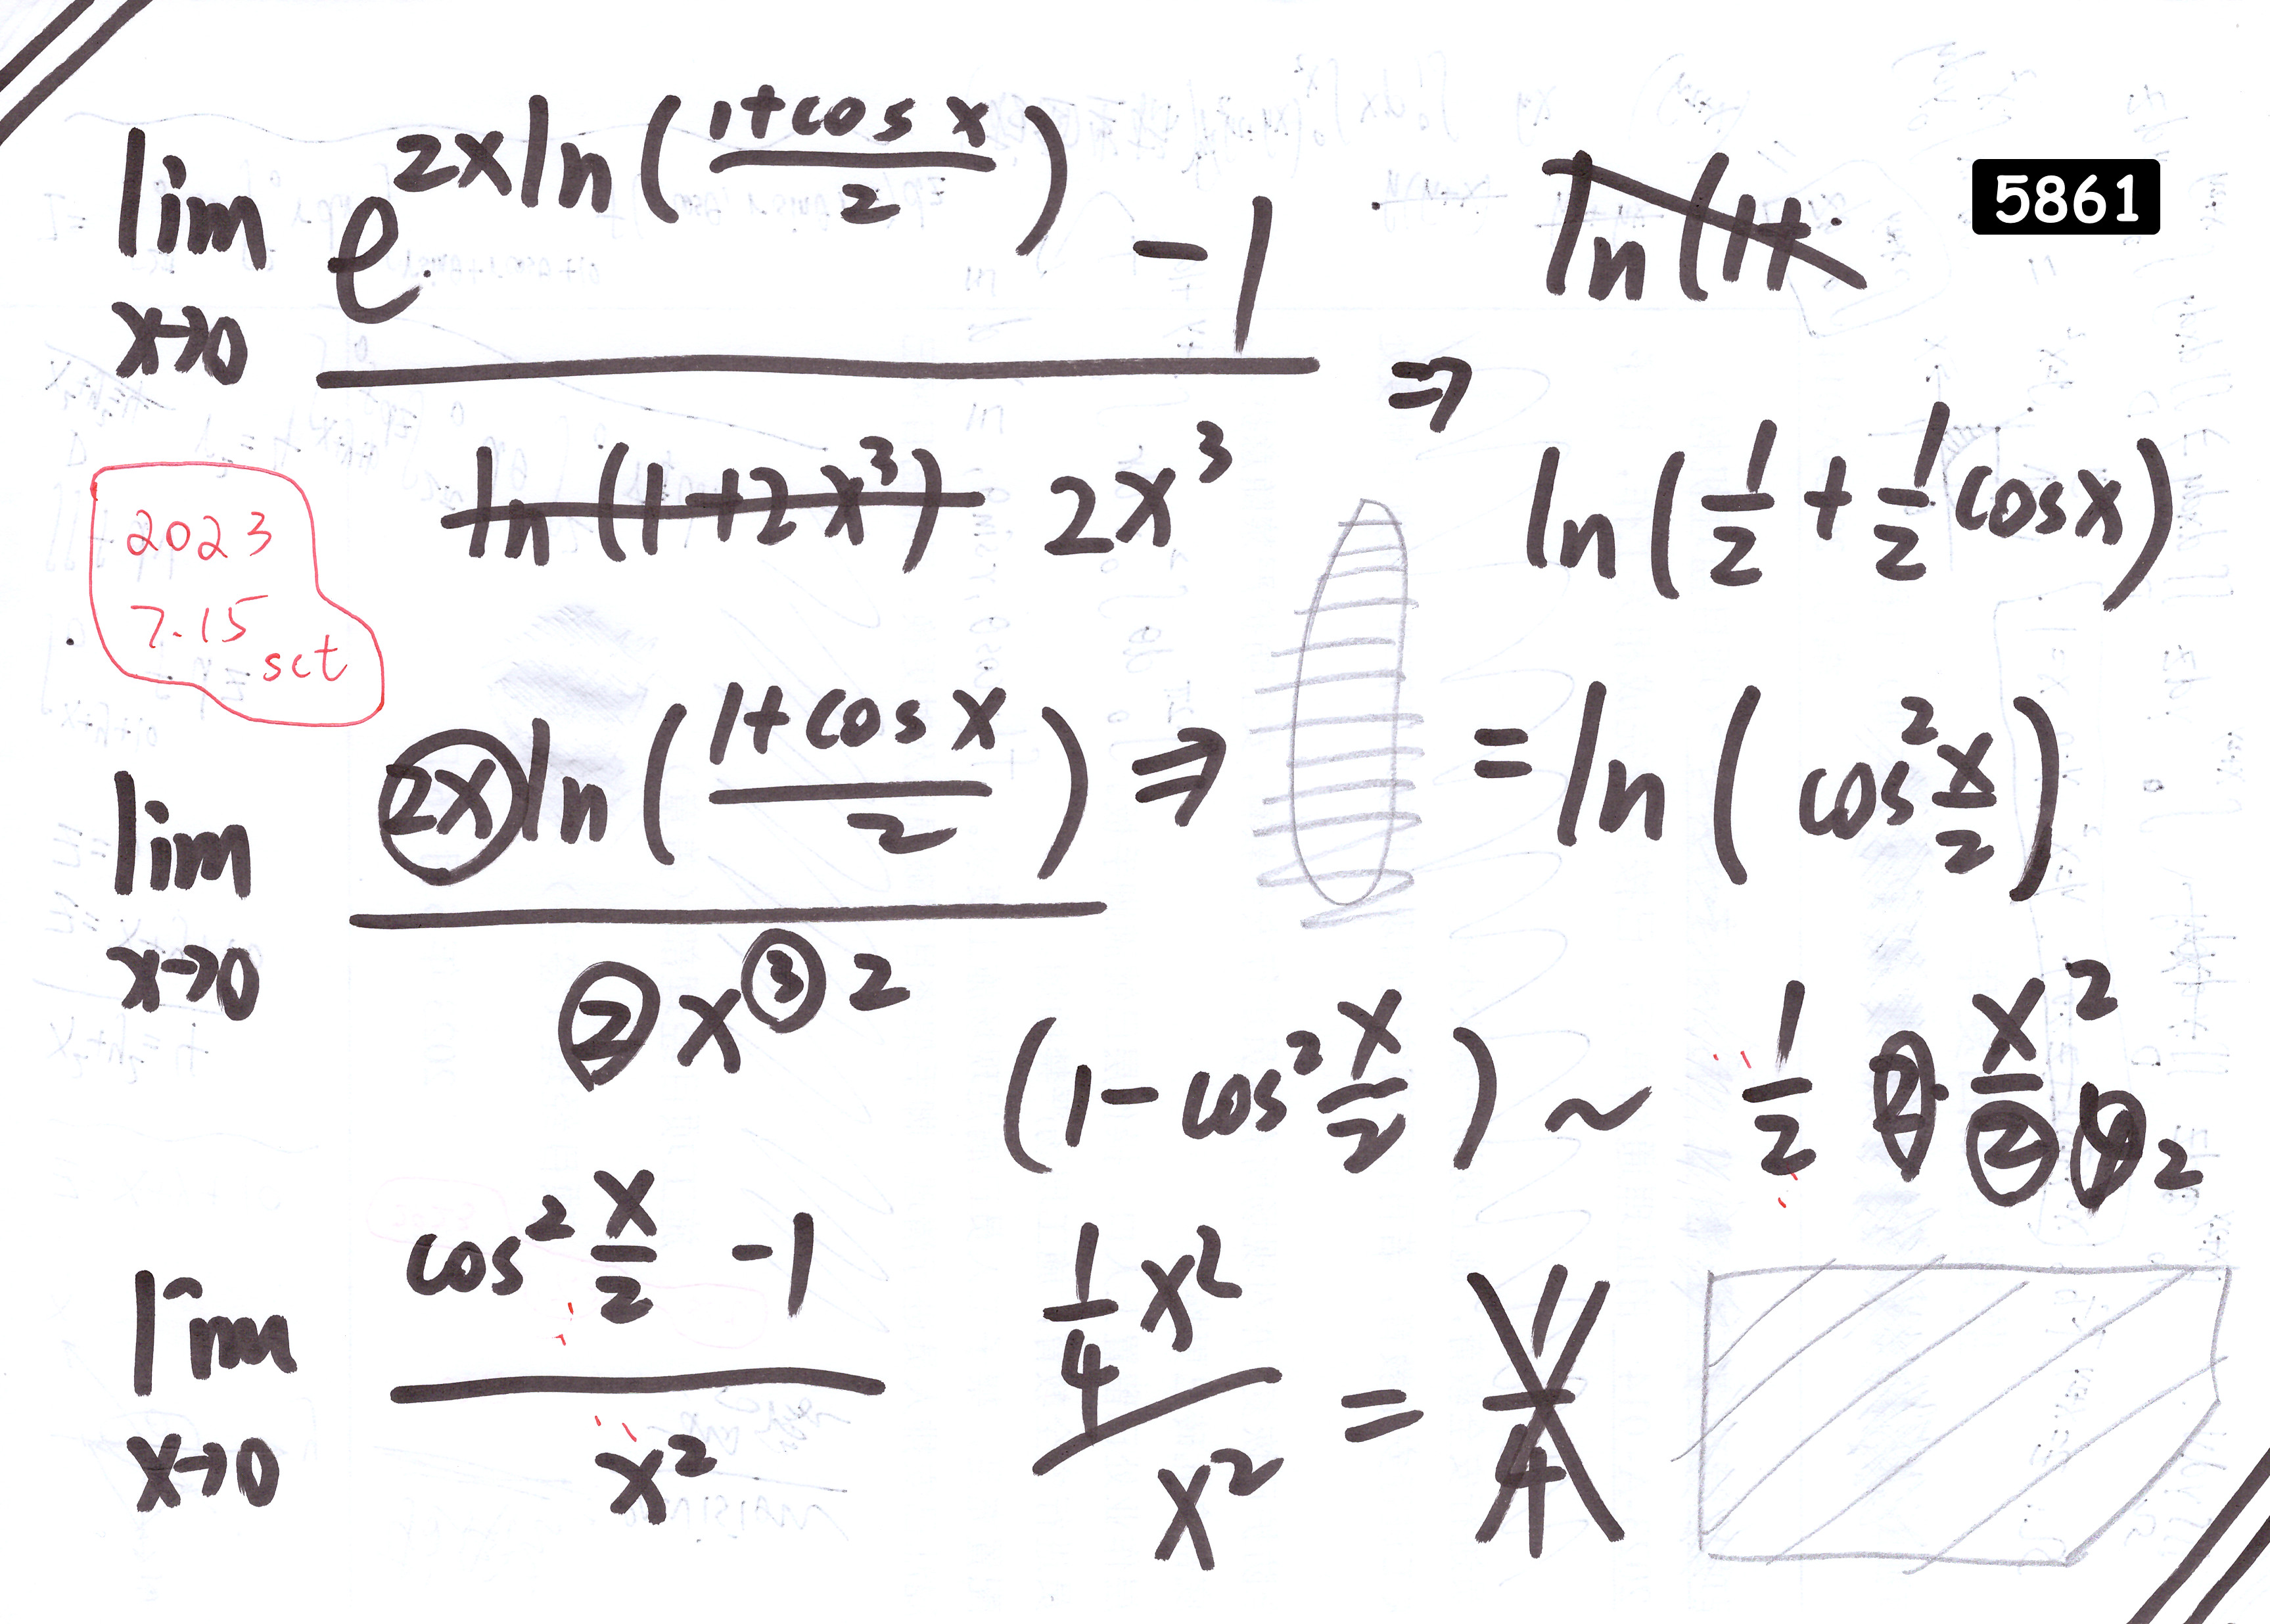 lim x→0 e^{2x ln((1+cos x)/2)} - 1
ln(1+
5861
ln(1+2x³) 2x³
⇒ ln(1/2 + 1/2 cos x)
2023
7.15
sct
lim x→0 2x ln((1+cos x)/2) ⇒
= ln(cos² x/2)
2 x³ 2
(1 - cos² x/2) ~ 1/2 2· x²/2 2
lim x→0 cos² x/2 - 1
x²
1/4 x² / x² = 1/4